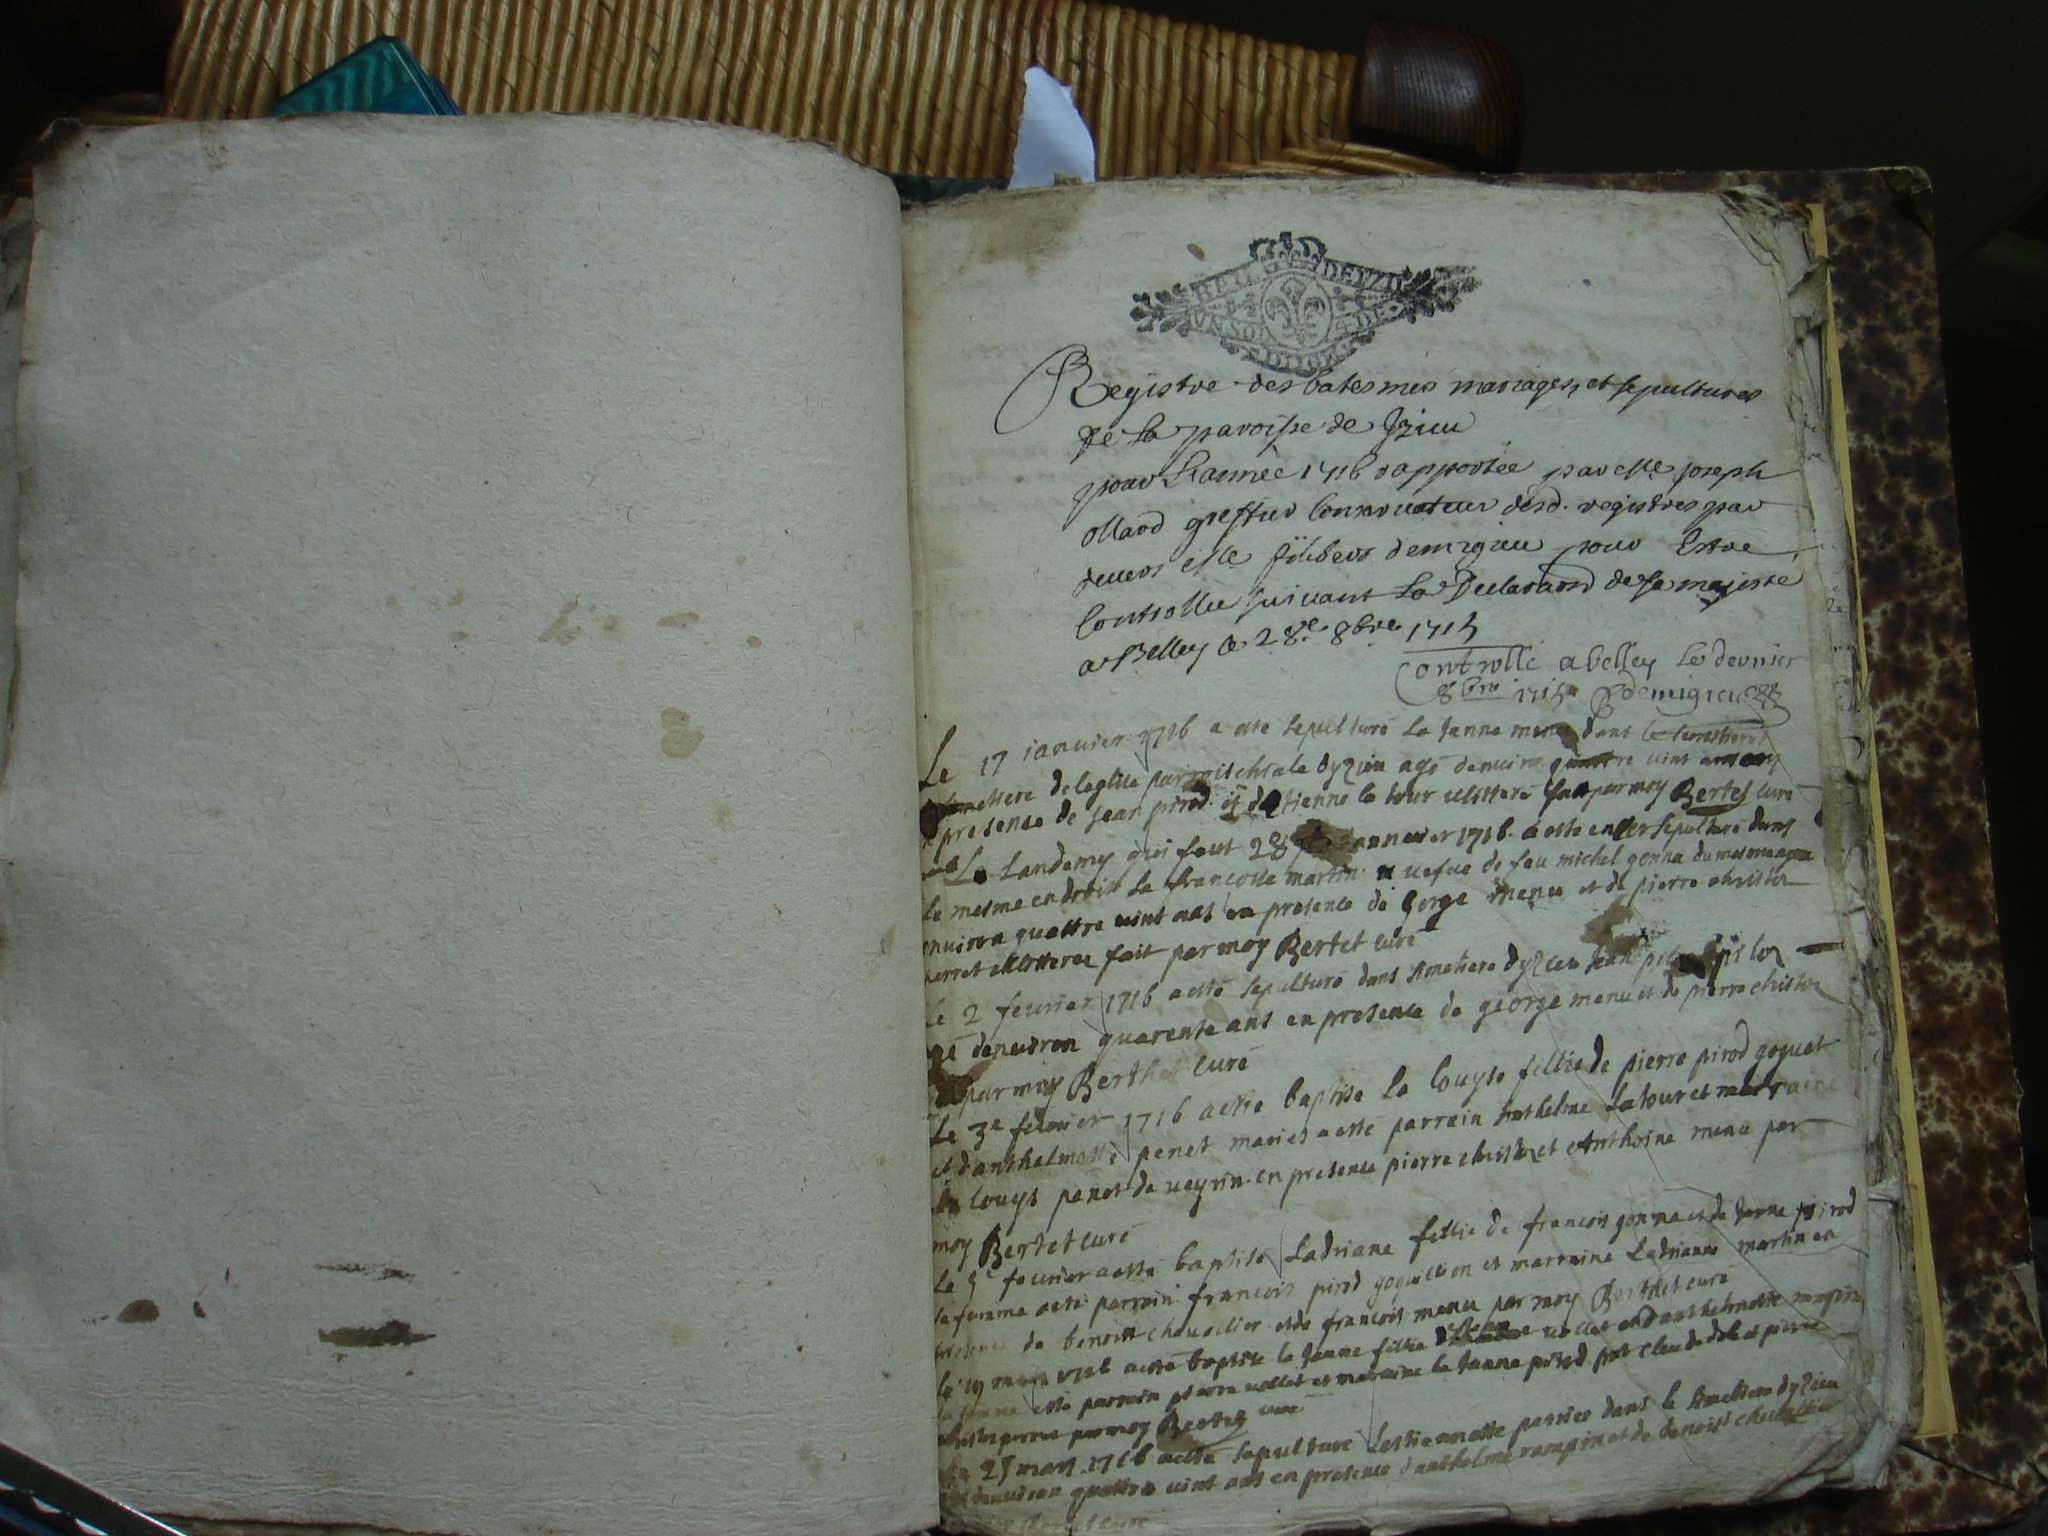 UN SOL 4 DE
DIJON
Registre des batesmes mariages et sepultures
de la paroisse de Jzieu
pour L'année 1716 rapportée par Me joseph
ollard greffier Conservateur desd. registres par
devers filibers demigieu pour Estre
Controllee suivant La Declaraon de sa majesté
a Belley le 28e 8bre 1715
Controlle a belley Le dernier
8bre 1715 demigieu
Le 17 ianvier 1716 a este sepulturé La Janna menu dans le
simetiere de leglise parroischiale dyzieu agé denviron quattre vint ans en
presence de Jean pirod et detienne la tour par moy Bertet curé
Le Landemy qui fout 28 Jannvier 1716 a esté sepulturé dans
le mesme endroit La francoise martin vefue de feu michel gonna
environ quattre vint ans en presence de Gorge menu et de pierre christin
perret fait par moy Bertet curé
Le 2 fevrier 1716 a esté sepulturé dans simetiere dyzieu Jean
agé denviron quarente ans en presence de george menu et de pierre christin
par moy Berthet curé
Le 3e fevrier 1716 a esté baptisé La Louyse fillie de pierre pirod goguet
et danthelmette penet mariés a esté parrain Anthelme Latour et marraine
La Louyse penet de veyrin en presence pierre christin et Anthoine menu par
moy Bertet curé
Le 5e fevrier a esté baptisé Ladriane fillie de francois gonna et de Janna pirod
sa femme a esté parrain francois pirod et marraine Ladrianne martin en
presence de benoit chevallier et de francois menu par moy Berthet curé
Le mars 1716 a esté baptisé la Janne fillie vollet et danthelmette
sa femme esté parrain pierre vollet et marraine la Janne pirod claude et pierre
par moy Bertet curé
Le 25 mars 1716 a esté sepulturé dans le simetiere dyzieu
denviron quattre vint ans en presence danthelme rampin et de benoist chevallier